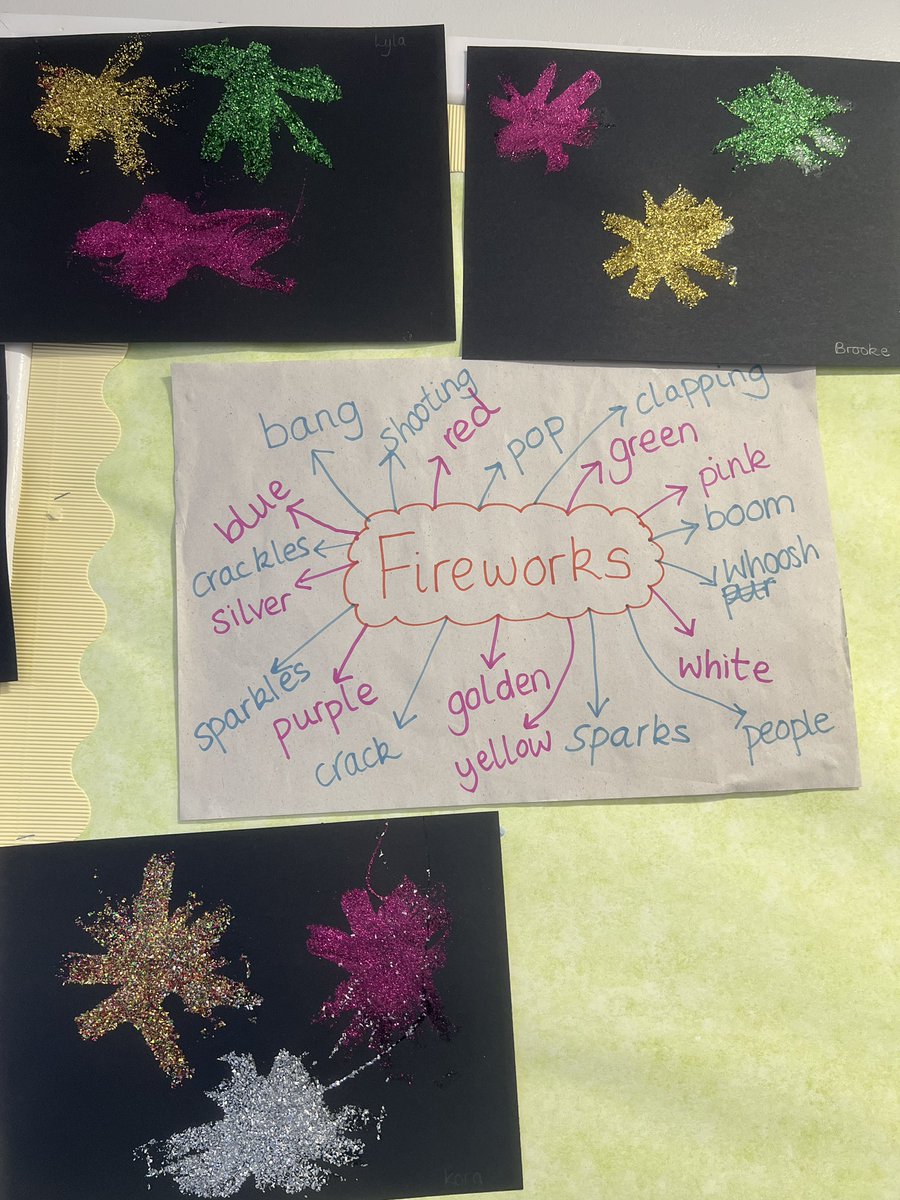 Lyla
Brooke
bang
shooting
red
pop
clapping
green
pink
boom
whoosh
white
people
sparks
yellow
golden
crack
purple
sparkles
silver
crackles
blue
Fireworks
Kora